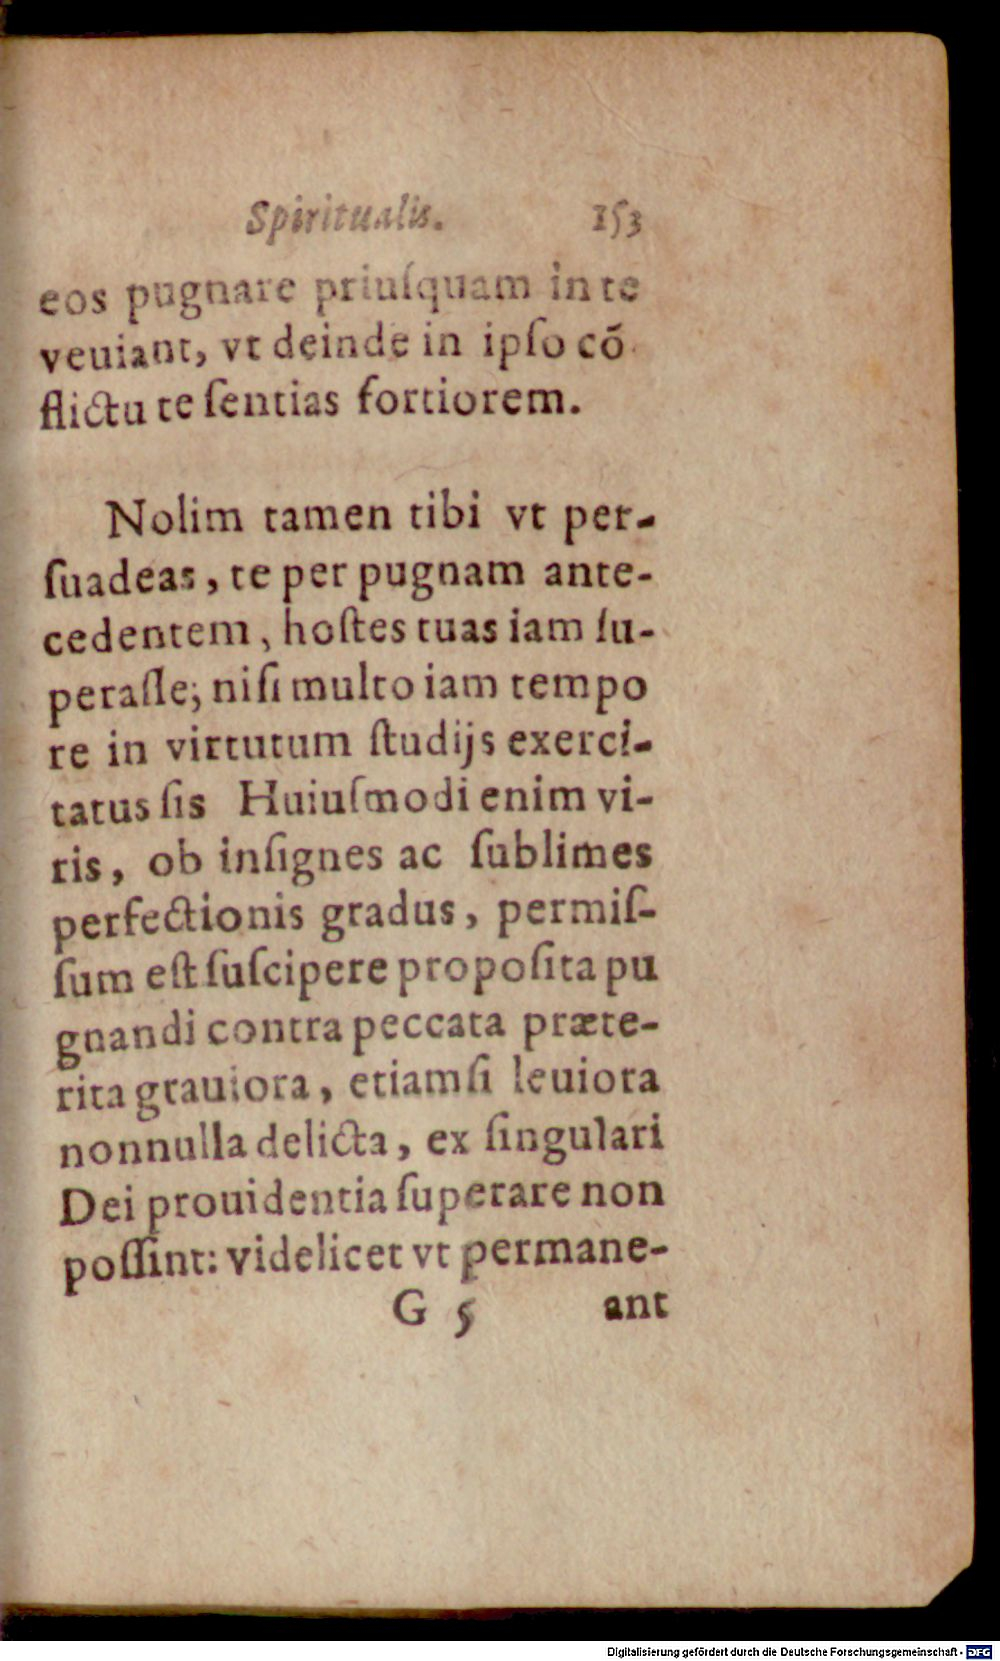 Spiritualis. 153
eos pugnare priuſquam in te
veuiant, vt deinde in ipſo cõ
flictu te ſentias fortiorem.
Nolim tamen tibi vt per-
ſuadeas, te per pugnam ante-
cedentem, hoſtes tuas iam ſu-
peraſſe; niſi multo iam tempo
re in virtutum ſtudijs exerci-
tatus ſis Huiuſmodi enim vi-
ris, ob inſignes ac ſublimes
perfectionis gradus, permiſ-
ſum eſt ſuſcipere propoſita pu
gnandi contra peccata præte-
rita grauiora, etiamſi leuiora
nonnulla delicta, ex ſingulari
Dei prouidentia ſuperare non
poſſint: videlicet vt permane-
G 5 ant
Digitalisierung gefördert durch die Deutsche Forschungsgemeinschaft - DFG